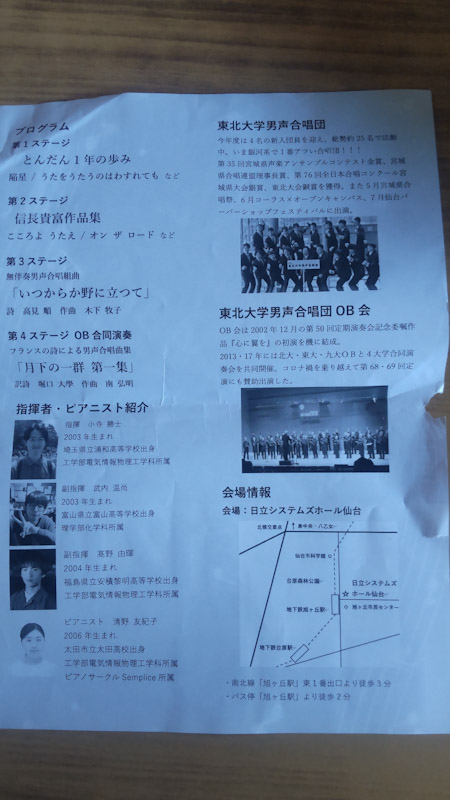 プログラム
第1ステージ
とんだん1年の歩み
陽星 / うたをうたうのはわすれても など
第2ステージ
信長貴富作品集
こころよ うたえ / オン ザ ロード など
第3ステージ
無伴奏男声合唱組曲
「いつからか野に立つて」
詩 高見 順 作曲 木下 牧子
第4ステージ OB合同演奏
フランスの詩による男声合唱曲集
「月下の一群 第一集」
訳詩 堀口 大學 作曲 南 弘明
指揮者・ピアニスト紹介
指揮 小寺 勝士
2003年生まれ
埼玉県立浦和高等学校出身
工学部電気情報物理工学科所属
副指揮 武内 温尚
2003年生まれ
富山県立富山高等学校出身
理学部化学科所属
副指揮 髙野 由暉
2004年生まれ
福島県立安積黎明高等学校出身
工学部電気情報物理工学科所属
ピアニスト 清野 友紀子
2006年生まれ
太田市立太田高校出身
工学部電気情報物理工学科所属
ピアノサークルSemplice所属
東北大学男声合唱団
今年度は4名の新入団員を迎え、総勢約25名で活動
中。いま銀河系で1番アツい合唱団!!!
第35回宮城県声楽アンサンブルコンテスト金賞、宮城
県合唱連盟理事長賞、第76回全日本合唱コンクール宮
城県大会銀賞、東北大会銀賞を獲得。また5月宮城県合
唱祭、6月コーラス×オープンキャンパス、7月仙台バ
ーバーショップフェスティバルに出演。
東北大学男声合唱団OB会
OB会は2002年12月の第50回定期演奏会記念委嘱作
品『心に翼を』の初演を機に結成。
2013・17年には北大・東大・九大OBと4大学合同演
奏会を共同開催。コロナ禍を乗り越えて第68・69回定
演にも賛助出演した。
会場情報
会場:日立システムズホール仙台
北根交差点
至中央・八乙女
仙台市科学館
台原森林公園
日立システムズ
ホール仙台
地下鉄旭ヶ丘駅
旭ヶ丘市民センター
地下鉄台原駅
・南北線「旭ヶ丘駅」東1番出口より徒歩3分
・バス停「旭ヶ丘駅」より徒歩2分